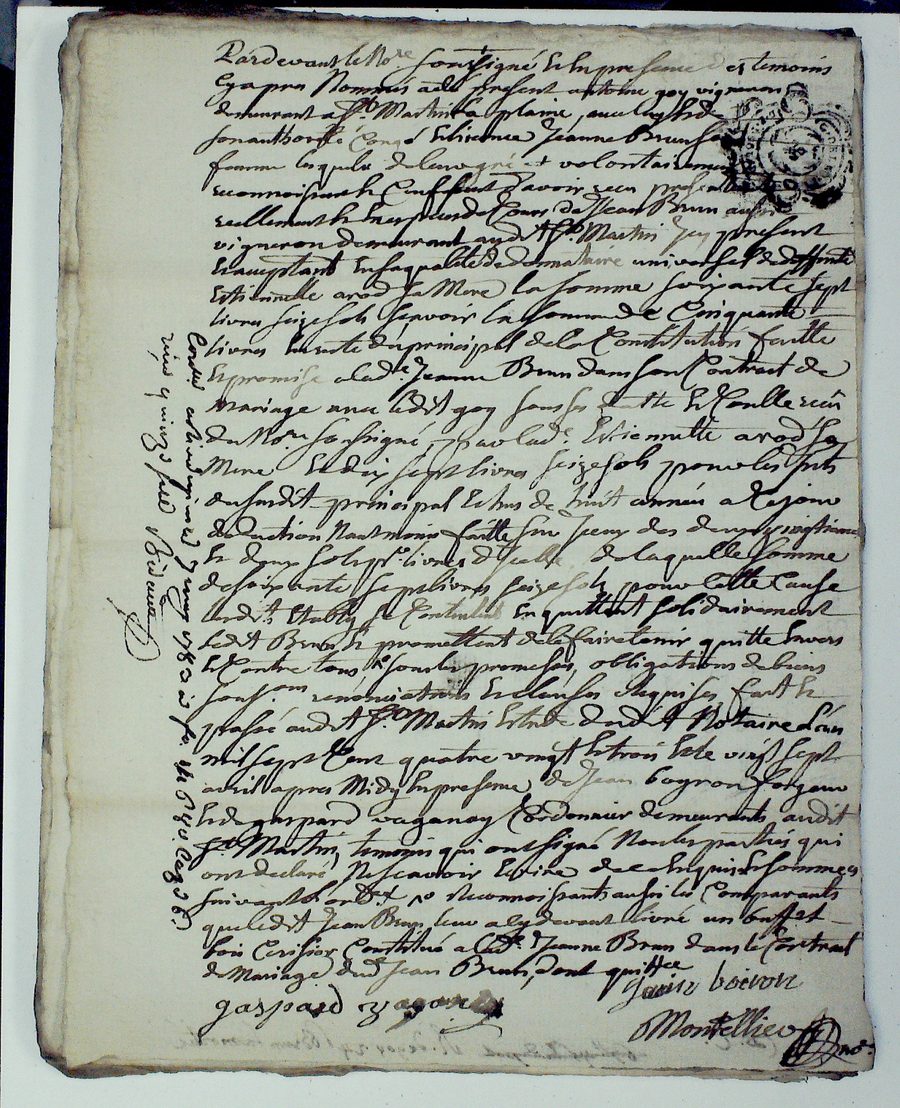 Pardevant le No.re soussigné et en presence des temoins
cy apres Nommés a été present antoine goy vigneron
demeurant a St. Martin la plaine, avec luy et de
son authorité Congé et licence Jeanne Brun sa
femme lesquels de leur gré et volontairement
reconnoissent et Confessent d'avoir recu presentement
reellement et en especes de Cours de Jean Brun aussi
vigneron demeurant audit St. Martin Icy present
et acceptant en sa qualité de donnataire universel de deffunte
Estiennette arod sa Mere la somme soixante sept
livres seize sols scavoir la somme de Cinquante
livres restante du principal de la Constitution faitte
et promise a lad.e Jeanne Brun dans son Contract de
Mariage avec ledit goy sous sa datte et Coulle recu
du No.re soussigné, par lad.e Estiennette arod sa
Mere et dix sept livres seize sols pour les Intérêts
du susdit principal echus de huit années a ce jour
deduction Neantmoins faitte sur Iceux des deux vingtiemes
et deux sols pr. livres d'Iceux, de laquelle somme
de soixante sept livres seize sols pour cette Cause
lesdits Etablis se Contentent en quittent solidairement
ledit Brun et promettent de le faire tenir quitte envers
et Contre tous, sous les promesses, obligations de biens
soum.ons renonciations et clauses requises fait et
passé audit St. Martin Etude dudit Notaire L'an
mil sept Cent quatre vingt et trois et le vingt sept
avril apres Midy en presence de Jean boyron forgeur
et de gaspard vaganay Cordonnier demeurants audit
St. Martin, temoins qui ont signé Non les parties qui
ont declaré Ne scavoir Ecrire de ce Enquis et sommées
suivant l'ord.ce reconnoissants aussi les Comparants
que ledit Jean Brun leur a cy devant livré un buffet
bois Cerisier Constitué a lad.e Jeanne Brun dans le Contract
de Mariage dud. Jean Brun, dont quitter
gaspard vaganay
Jean boiron
Montellier no.re
Controllé a 1783
reçu quinze sols